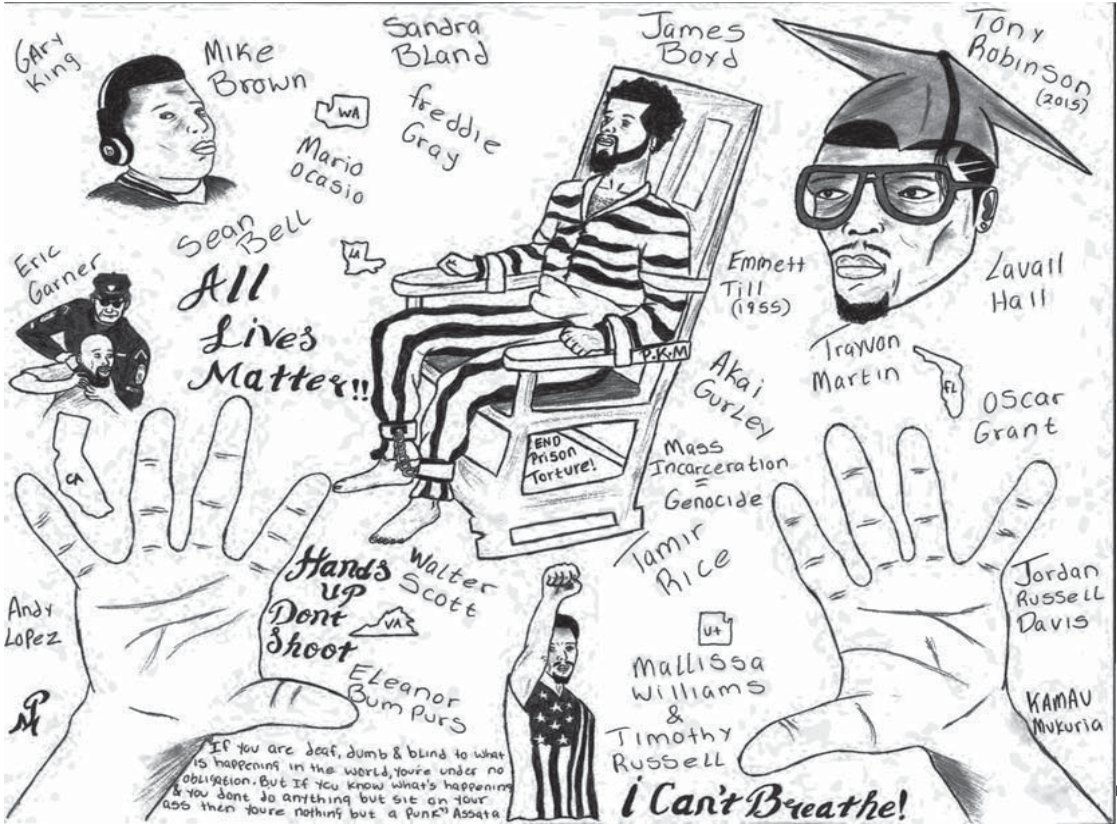 GAry
King
Mike
Brown
Sandra
BLand
James
Boyd
Tony
Robinson
(2015)
WA
freddie
Gray
Mario
Ocasio
Sean
Bell
LA
Eric
Garner
All
Lives
Matter!!
Emmett
Till
(1955)
Lavall
Hall
P.K.M
Trayvon
Martin
FL
Akai
GurLey
Oscar
Grant
CA
END
Prison
Torture!
Mass
Incarceration
=
Genocide
Tamir
Rice
Hands
UP
Dont
Shoot
Walter
Scott
VA
Andy
Lopez
Eleanor
Bumpurs
Jordan
Russell
Davis
Ut
Mallissa
Williams
&
Timothy
Russell
KAMAU
Mukuria
If you are deaf, dumb & blind to what
is happening in the world, you're under no
obligation. But If you know what's happening
& you dont do anything but sit on your
ass then youre nothing but a Punk" Assata
i Can't Breathe!